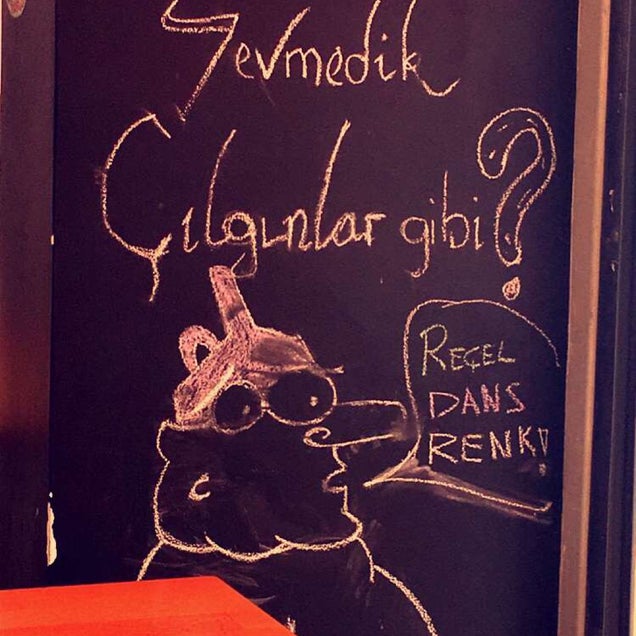 Sevmedik
Çılgınlar gibi?
REÇEL
DANS
RENK!